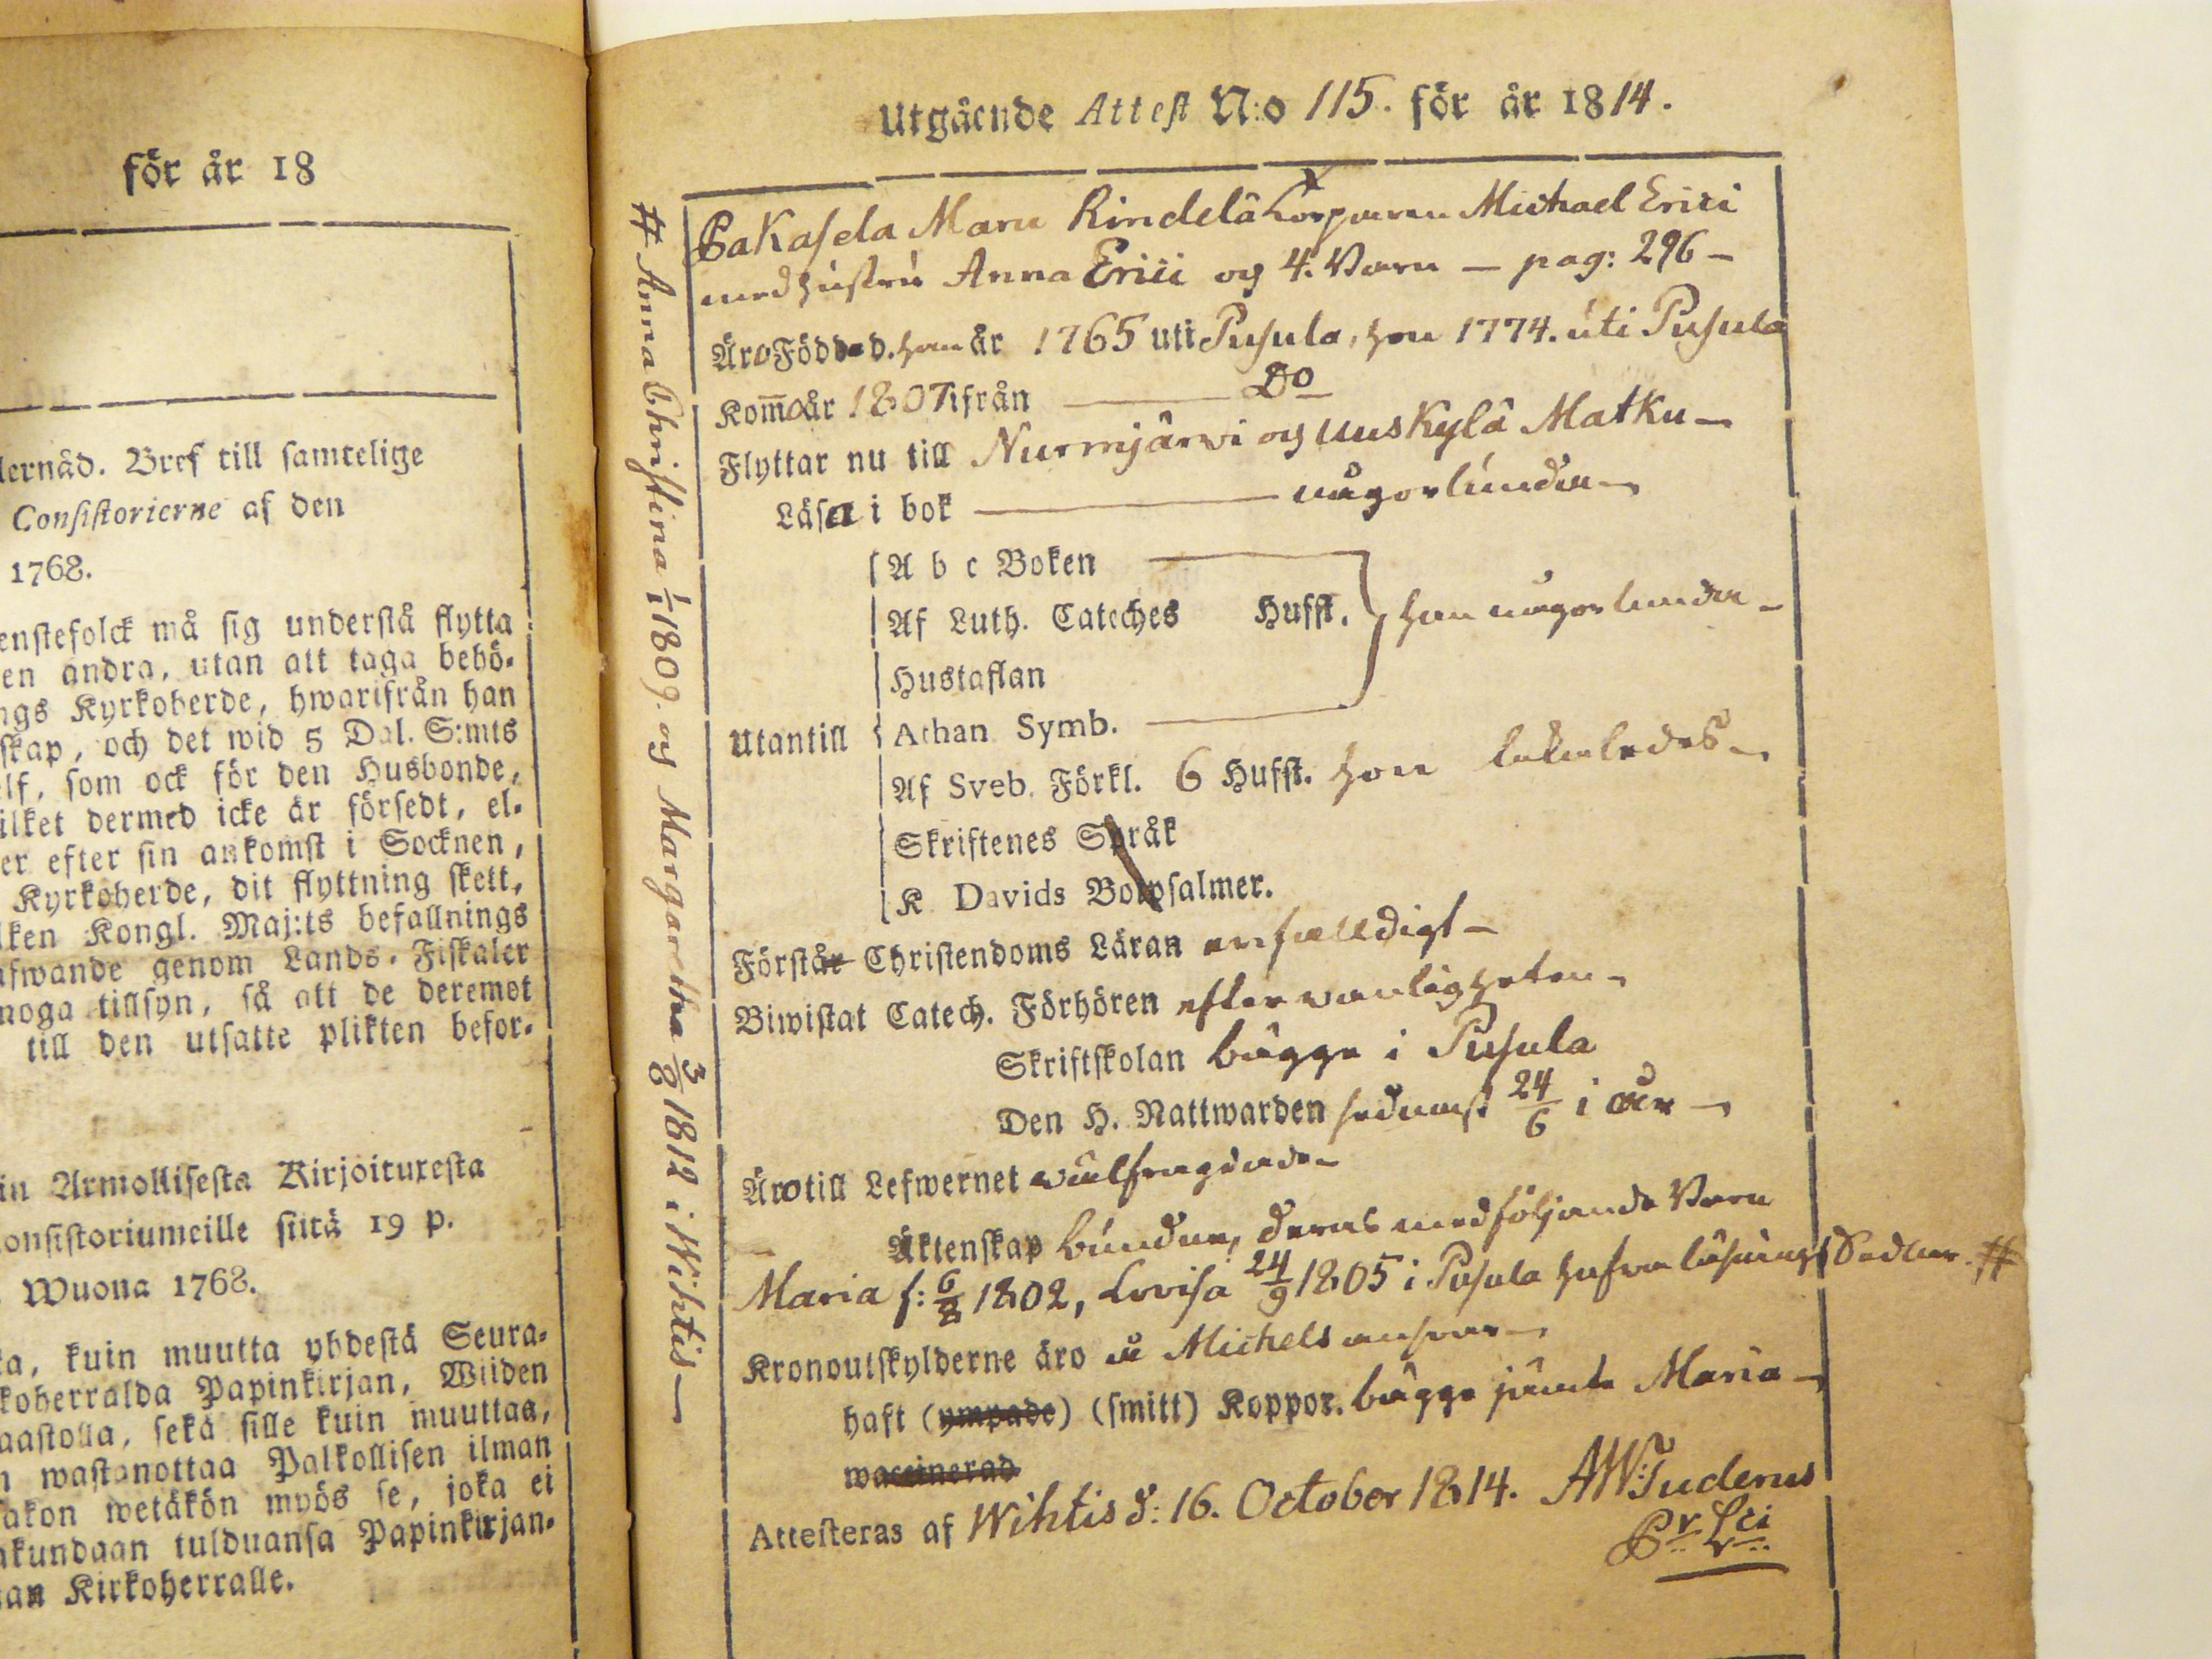 för år 18
lernåd. Bref till samtelige
Consistorierne af den
1768.
enstefolck må sig understå flytta
en andra, utan att taga behö-
ngs Kyrkoherde, hwarifrån han
skap, och det wid 5 Dal. S:mts
elf, som ock för den Husbonde,
ilket dermed icke är försedt, el-
er efter sin ankomst i Socknen,
Kyrkoherde, dit flyttning skett,
lken Kongl. Maj:ts befallnings
afwande genom Lands-Fiskaler
noga tillsyn, så att de deremot
till den utsatte plikten befor-
in Armollisesta Kirjoituxesta
onsistoriumeille siitä 19 p.
Wuona 1768.
ka, kuin muutta yhdestä Seura-
koherralda Papinkirjan, Wiiden
aastolla, sekä sille kuin muuttaa,
n wastanottaa Palkollisen ilman
akon wetäkön myös se, joka ei
akundaan tulduansa Papinkirjan-
an Kirkoherralle.
Utgående Attest N:o 115. för år 1814.
Pakasela Maru Rindelä Torparen Michael Erici
med hustru Anna Erici og 4. Barn – pag: 296 –
Äro Födde d. han år 1765 uti Pusula, hon 1774. uti Pusula
Kommo år 1807 ifrån Do
Flyttar nu till Nurmjärwi og Uuskylä Matku –
Läsa i bok någorlunda –
A b c Boken
Af Luth. Cateches Hufst. han någorlunda –
Hustaflan
Utantill Athan Symb.
Af Sveb. Förkl. 6 Hufst. hon likaledes –
Skriftenes Språk
K Davids Botpsalmer.
Förstår Christendoms Läran enfalldigt –
Biwistat Catech. Förhören efter wanligheten –
Skriftskolan bägge i Pusula
Den H. Nattwarden sednast 24/6 i år –
Äro till Lefwernet wälfrägdade –
Äktenskap bundne, deras medföljande Barn
Maria f: 6/8 1802, Lovisa 24/9 1805 i Pusula hafwa läsnings Sedlar. #
Kronoutskylderne äro å Michels answar –
haft (ympade) (smitt) Koppor. bägge jämte Maria –
waccinerad
Attesteras af Wihtis d: 16. October 1814. AW: Tuderus
# Anna Christina 1/1 1809. og Margaretha 3/8 1812 i Wihtis –